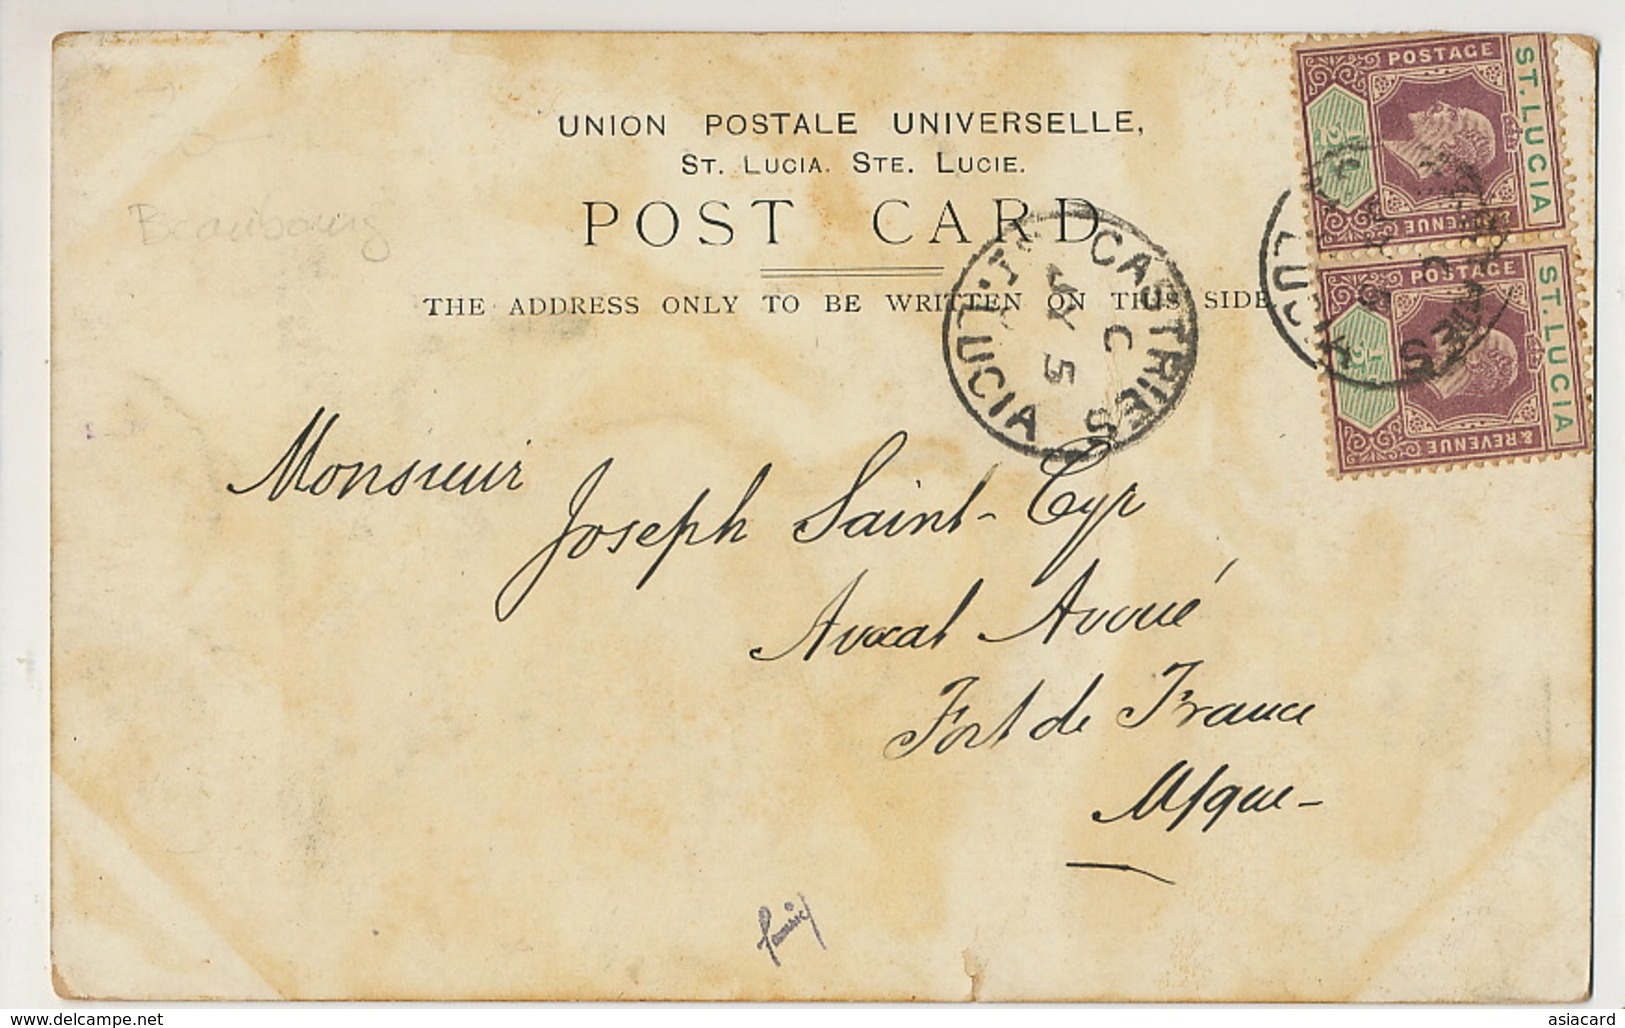 UNION POSTALE UNIVERSELLE,
ST. LUCIA. STE. LUCIE.
POST CARD
THE ADDRESS ONLY TO BE WRITTEN ON THIS SIDE
Beaubourg
POSTAGE
ST. LUCIA
& REVENUE
POSTAGE
ST. LUCIA
& REVENUE
CASTRIES
C
5
ST. LUCIA
Monsieur
Joseph Saint-Cyr
Avocat Avoué
Fort de France
M/que-
www.delcampe.net
asiacard